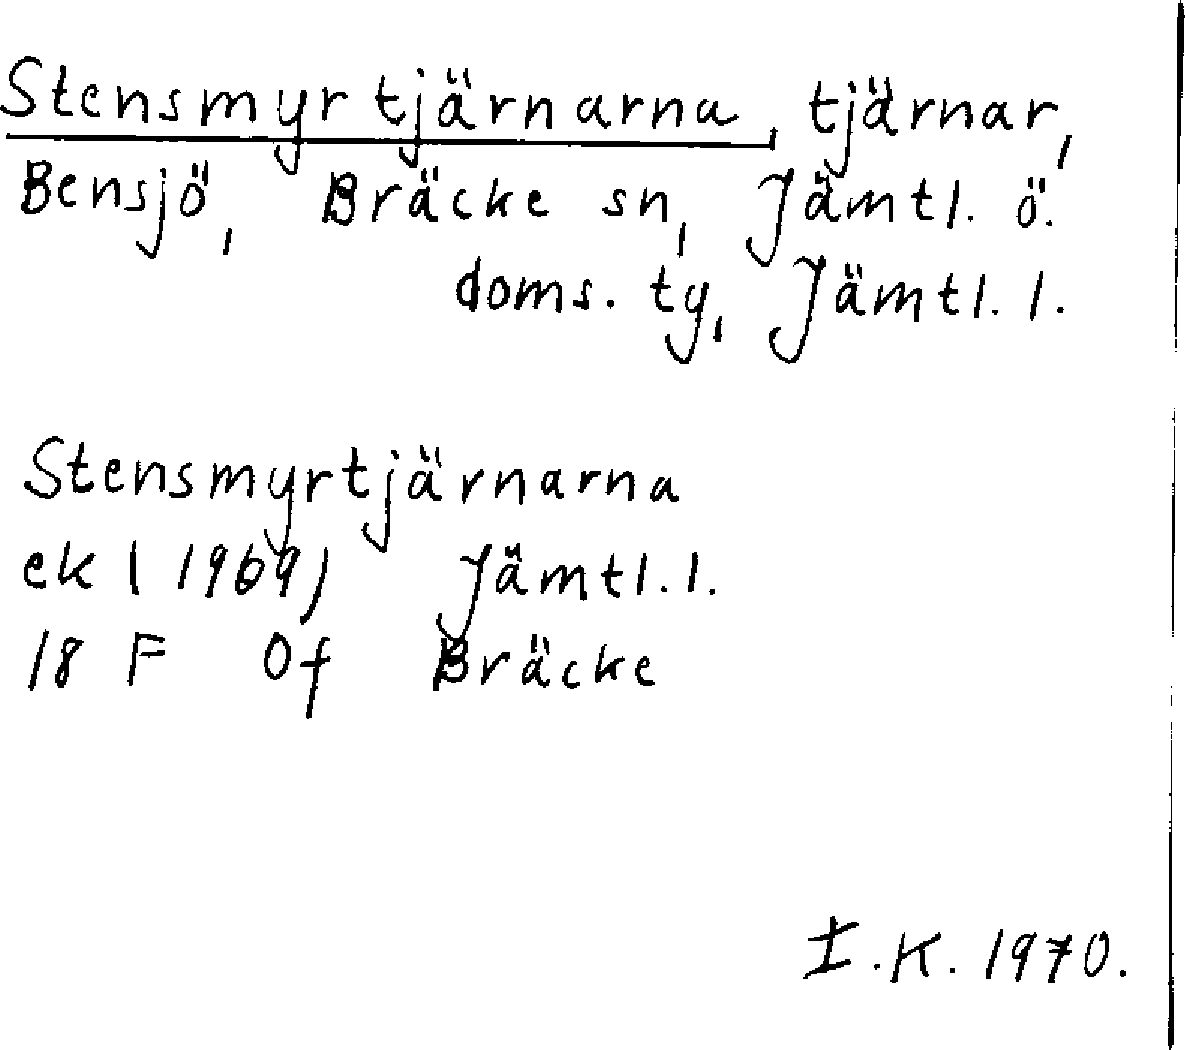 Stensmyrtjärnarna, tjärnar,
Bensjö, Bräcke sn, Jämtl. ö.
doms. ty, Jämtl. l.
Stensmyrtjärnarna
ek (1969) Jämtl. l.
18 F Of Bräcke
I.K. 1970.